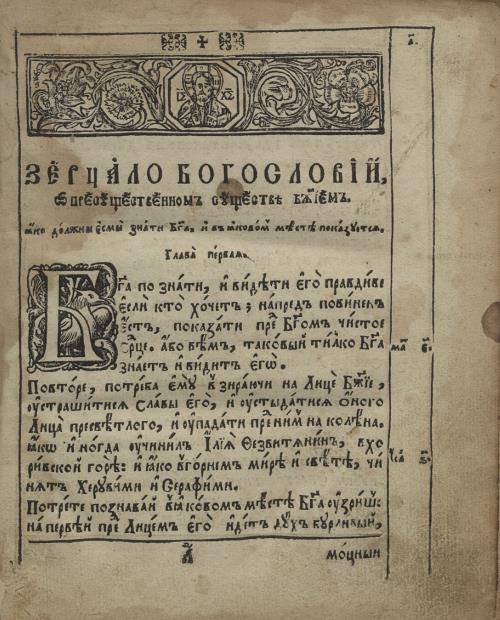 а҃.
ІС ХС
ЗЕ́РЦА́ЛО БОГОСЛО́ВІЙ,
Ѡ пресꙋ́щественномъ сꙋществѣ Бж҃іемъ.
ꙗ҆́ко до́лжны е҆смы̀ зна́ти Бг҃а. и҆ въ ꙗ҆ково́мъ мѣстѣ пока́зꙋется.
Глава̀ пе́рваѧ.
Бг҃а по зна́ти, и҆ ви́дѣти е҆го̀ пра́вдиве
е҆́сли кто̀ хо́четъ; на́предъ пови́ненъ
е҆́стъ, показа́ти пре Бг҃омъ чи́стое
ср҃це. а҆́бо вѣмъ, тако́вый ти́лко Бг҃а
зна́етъ и҆ ви́дитъ е҆гѡ̀.
Повто́ре, потре́ба е҆мꙋ̀ взира́ючи на Лицѐ Бж҃іе,
ᲂу҆страши́тисѧ Сла́вы е҆го̀, и҆ ᲂу҆стыда́тисѧ ѻ҆́ного
Лица̀ пресвѣ́тлого, и҆ ᲂу҆па́дати пре ни́мъ на колѣ́на.
ꙗ҆́кѡ и҆ но́гда ᲂу҆чини́лъ І҆лїѧ̀ Ѳезвитѧ́нинъ, в хо
ри́вской горѣ̀: и҆ ꙗ҆́ко в го́рнемъ ми́рѣ и҆ свѣ́тѣ, чи
нѧ́тъ Херꙋви́ми и҆ Серафи́ми.
Потре́те познава́й в ꙗ҆ково́мъ мѣ́стѣ Бг҃а ᲂу҆́зриш:
на первѣ́й пре Лице́мъ е҆го̀ и҆де́тъ дꙋ́хъ бꙋрли́вый,
а҃
мо́цный